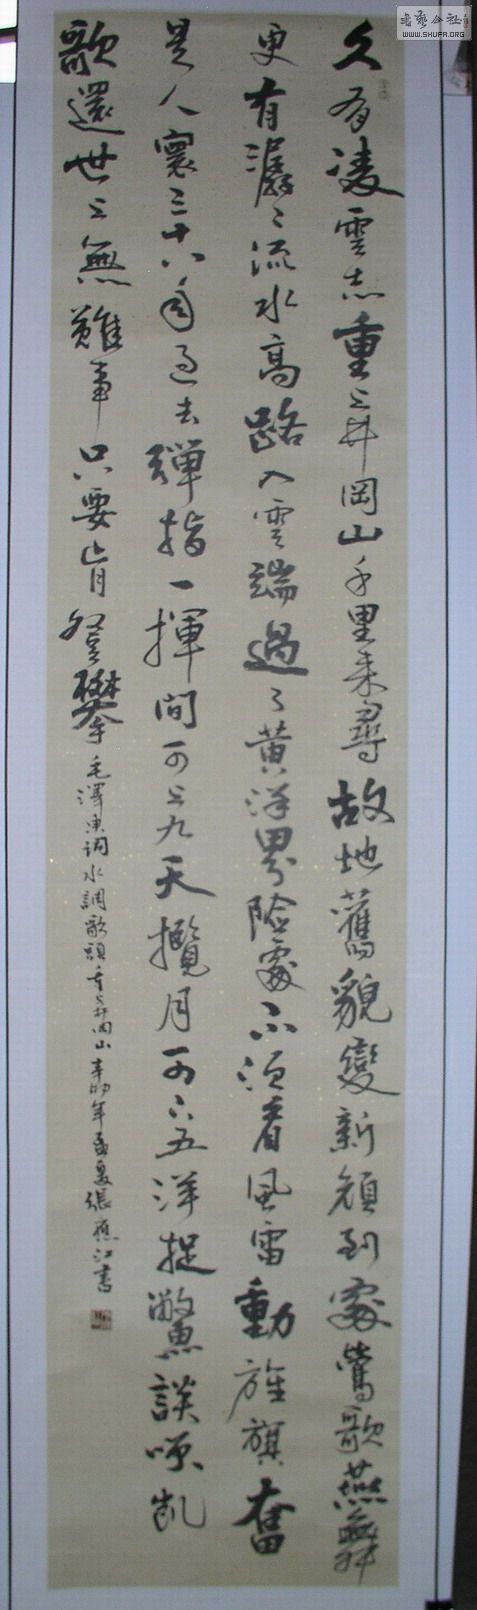 書藝公社
WWW.SHUFA.ORG
久有凌雲志重上井岡山千里来尋故地舊貌變新顏到處鶯歌燕舞
更有潺々流水高路入雲端過了黄洋界險處不須看風雷動旌旗奮
是人寰三十八年過去彈指一揮間可上九天攬月可下五洋捉鱉談咲凱
歌還世上無難事只要肯登攀 毛澤東詞水調歌頭重上井岡山 辛卯年孟夏張江書